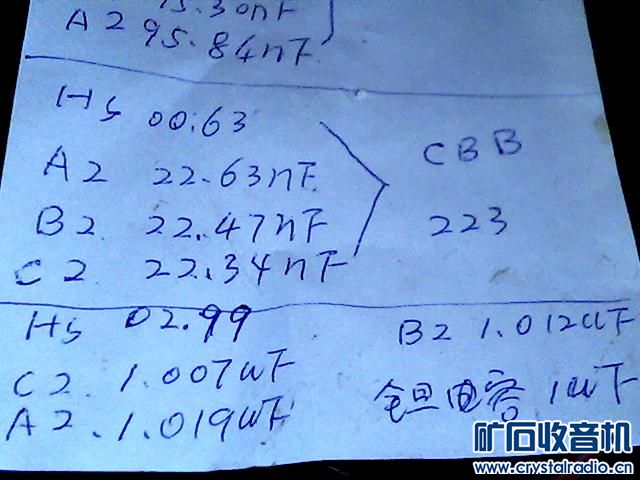 75.30nF
A2 95.84nF
Hs 00.63
A2 22.63nF
B2 22.47nF
C2 22.34nF
CBB
223
Hs 02.99
C2.1.007uF
A2.1.019uF
B2 1.012uF
钽电容 1uF
矿石收音机
www.crystalradio.cn